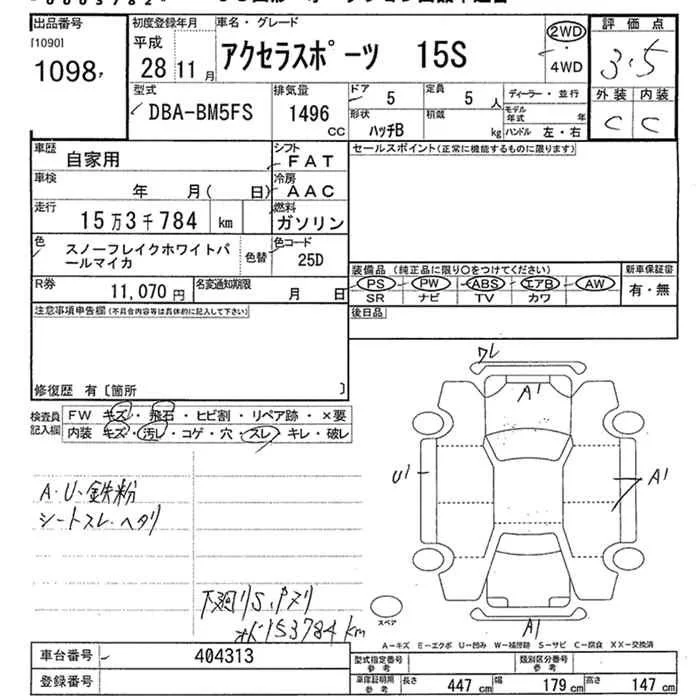 出品番号
[1090]
1098
初度登録年月
平成
28 11 月
車名・グレード
アクセラスポーツ 15S
2WD
4WD
評価点
3.5
外装 内装
C C
型式
DBA-BM5FS
排気量
1496 CC
ドア
5
定員
5 人
形状
ハッチB
積載
kg
ディーラー・並行
モデル年式 年
ハンドル 左・右
車歴
自家用
シフト
FAT
車検
年 月( 日)
冷房
AAC
走行
15万3千784 km
燃料
ガソリン
色
スノーフレイクホワイトパールマイカ
色替
色コード
25D
R券
11,070 円
名変通知期限
月 日
セールスポイント(正常に機能するものに限ります)
装備品 (純正品に限り○をつけてください)
PS PW ABS エアB AW
SR ナビ TV カワ
新車保証書
有・無
後日品
注意事項申告欄(不具合内容等は具体的に記入して下さい)
修復歴 有〔箇所 〕
検査員記入欄
FW キズ・飛石・ヒビ割・リペア跡・×要
内装 キズ・汚レ・コゲ・穴・スレ・キレ・破レ
A・U・鉄粉
シートスレ・ヘタリ
下廻りS、Pヌリ
オド153784km
ワレ
A1
U1
A1
A1
スペア
A-キズ E-エクボ U-凹み W-補修跡 S-サビ C-腐食 XX-交換済
車台番号
404313
登録番号
型式指定番号 参考
類別区分番号 参考
車庫証明用 参考
長さ 447 cm 幅 179 cm 高さ 147 cm